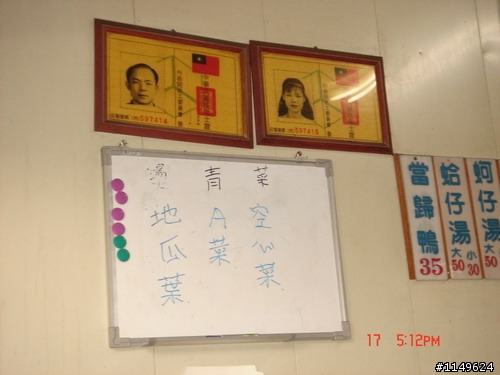 597414
597415
菜
青
空心菜
A菜
地瓜葉
蚵仔湯
大50
蛤仔湯
大50
小30
當歸鴨
35
17 5:12PM
#1149624